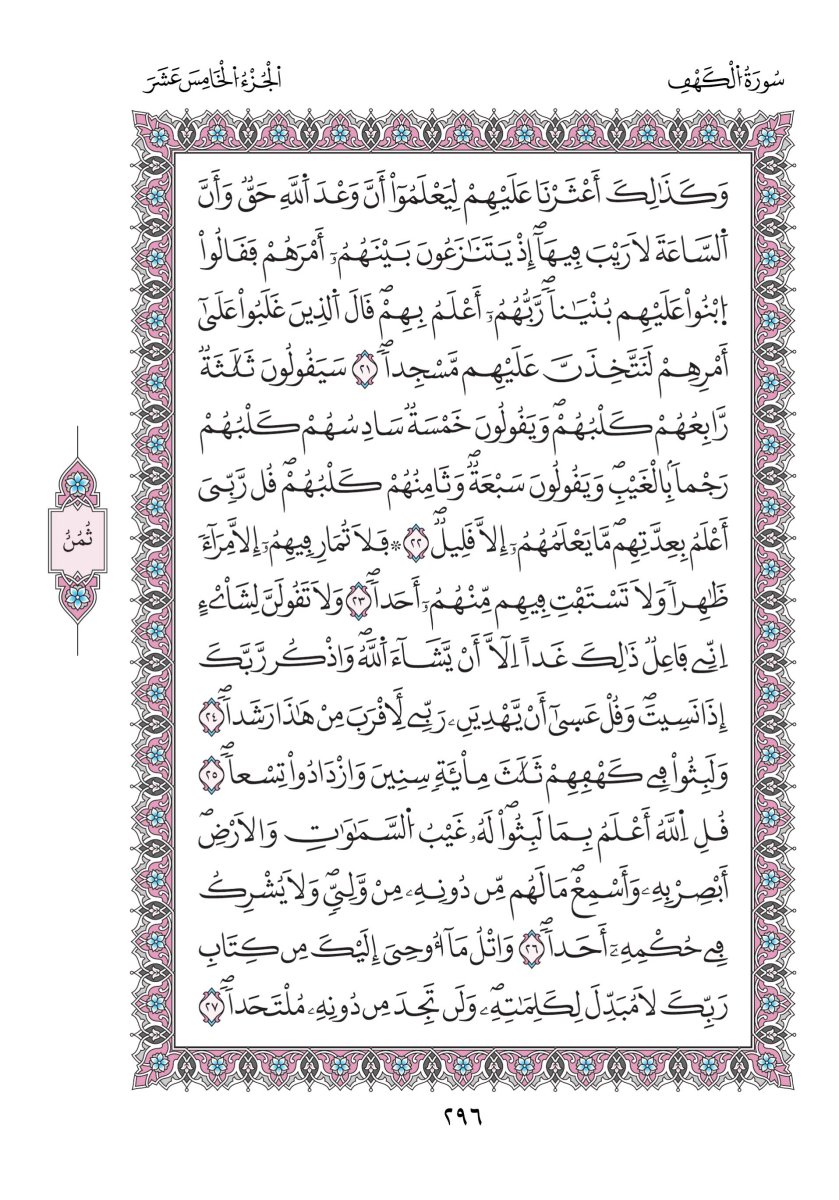 سُورَةُ اُ۬لْكَهْفِ
اُ۬لْجُزْءُ اُ۬لْخَامِسَ عَشَرَ
وَكَذَٰلِكَ أَعْثَرْنَا عَلَيْهِمْ لِيَعْلَمُوٓاْ أَنَّ وَعْدَ اَ۬للَّهِ حَقّٞ وَأَنَّ
اَ۬لسَّاعَةَ لَا رَيْبَ فِيهَآۖ إِذْ يَتَنَٰزَعُونَ بَيْنَهُمُۥٓ أَمْرَهُمْ فَقَالُواْ
اُ۪بْنُواْ عَلَيْهِم بُنْيَٰناٗۖ رَّبُّهُمُۥٓ أَعْلَمُ بِهِمْۖ قَالَ اَ۬لذِينَ غَلَبُواْ عَلَىٰٓ
أَمْرِهِمْ لَنَتَّخِذَنَّ عَلَيْهِم مَّسْجِداٗۖ ٢١ سَيَقُولُونَ ثَلَٰثَةٞ
رَّابِعُهُمْ كَلْبُهُمْۖ وَيَقُولُونَ خَمْسَةٞ سَادِسُهُمْ كَلْبُهُمْ
رَجْماَۢ بِالْغَيْبِۖ وَيَقُولُونَ سَبْعَةٞۖ وَثَامِنُهُمْ كَلْبُهُمْۖ قُل رَّبِّيَ
أَعْلَمُ بِعِدَّتِهِم مَّا يَعْلَمُهُمُۥٓ إِلَّا قَلِيلٞۖ ٢٢ ۞ فَلَا تُمَارِ فِيهِمُۥٓ إِلَّا مِرَآءٗ
ظَٰهِراٗ وَلَا تَسْتَفْتِ فِيهِم مِّنْهُمُۥٓ أَحَداٗۖ ٢٣ وَلَا تَقُولَنَّ لِشَاْےْءٍ
اِنِّے فَاعِلٞ ذَٰلِكَ غَداً اِلَّآ أَنْ يَّشَآءَ اَ۬للَّهُۖ وَاذْكُر رَّبَّكَ
إِذَا نَسِيتَۖ وَقُلْ عَسِىٰٓ أَنْ يَّهْدِيَنِۦ رَبِّے لِأَقْرَبَ مِنْ هَٰذَا رَشَداٗۖ ٢٤
وَلَبِثُواْ فِے كَهْفِهِمْ ثَلَٰثَ مِاْئَةٖ سِنِينَ وَازْدَادُواْ تِسْعاٗۖ ٢٥
قُلِ اِ۬للَّهُ أَعْلَمُ بِمَا لَبِثُواْۖ لَهُۥ غَيْبُ اُ۬لسَّمَٰوَٰتِ وَالَارْضِۖ
أَبْصِرْ بِهِۦ وَأَسْمِعْۖ مَا لَهُم مِّن دُونِهِۦ مِنْ وَّلِيّٖۖ وَلَا يُشْرِكُ
فِے حُكْمِهِۦٓ أَحَداٗۖ ٢٦ وَاتْلُ مَآ أُوحِيَ إِلَيْكَ مِن كِتَابِ
رَبِّكَ لَا مُبَدِّلَ لِكَلِمَٰتِهِۦۖ وَلَن تَجِدَ مِن دُونِهِۦ مُلْتَحَداٗۖ ٢٧
ثُمُنُ
٢٩٦